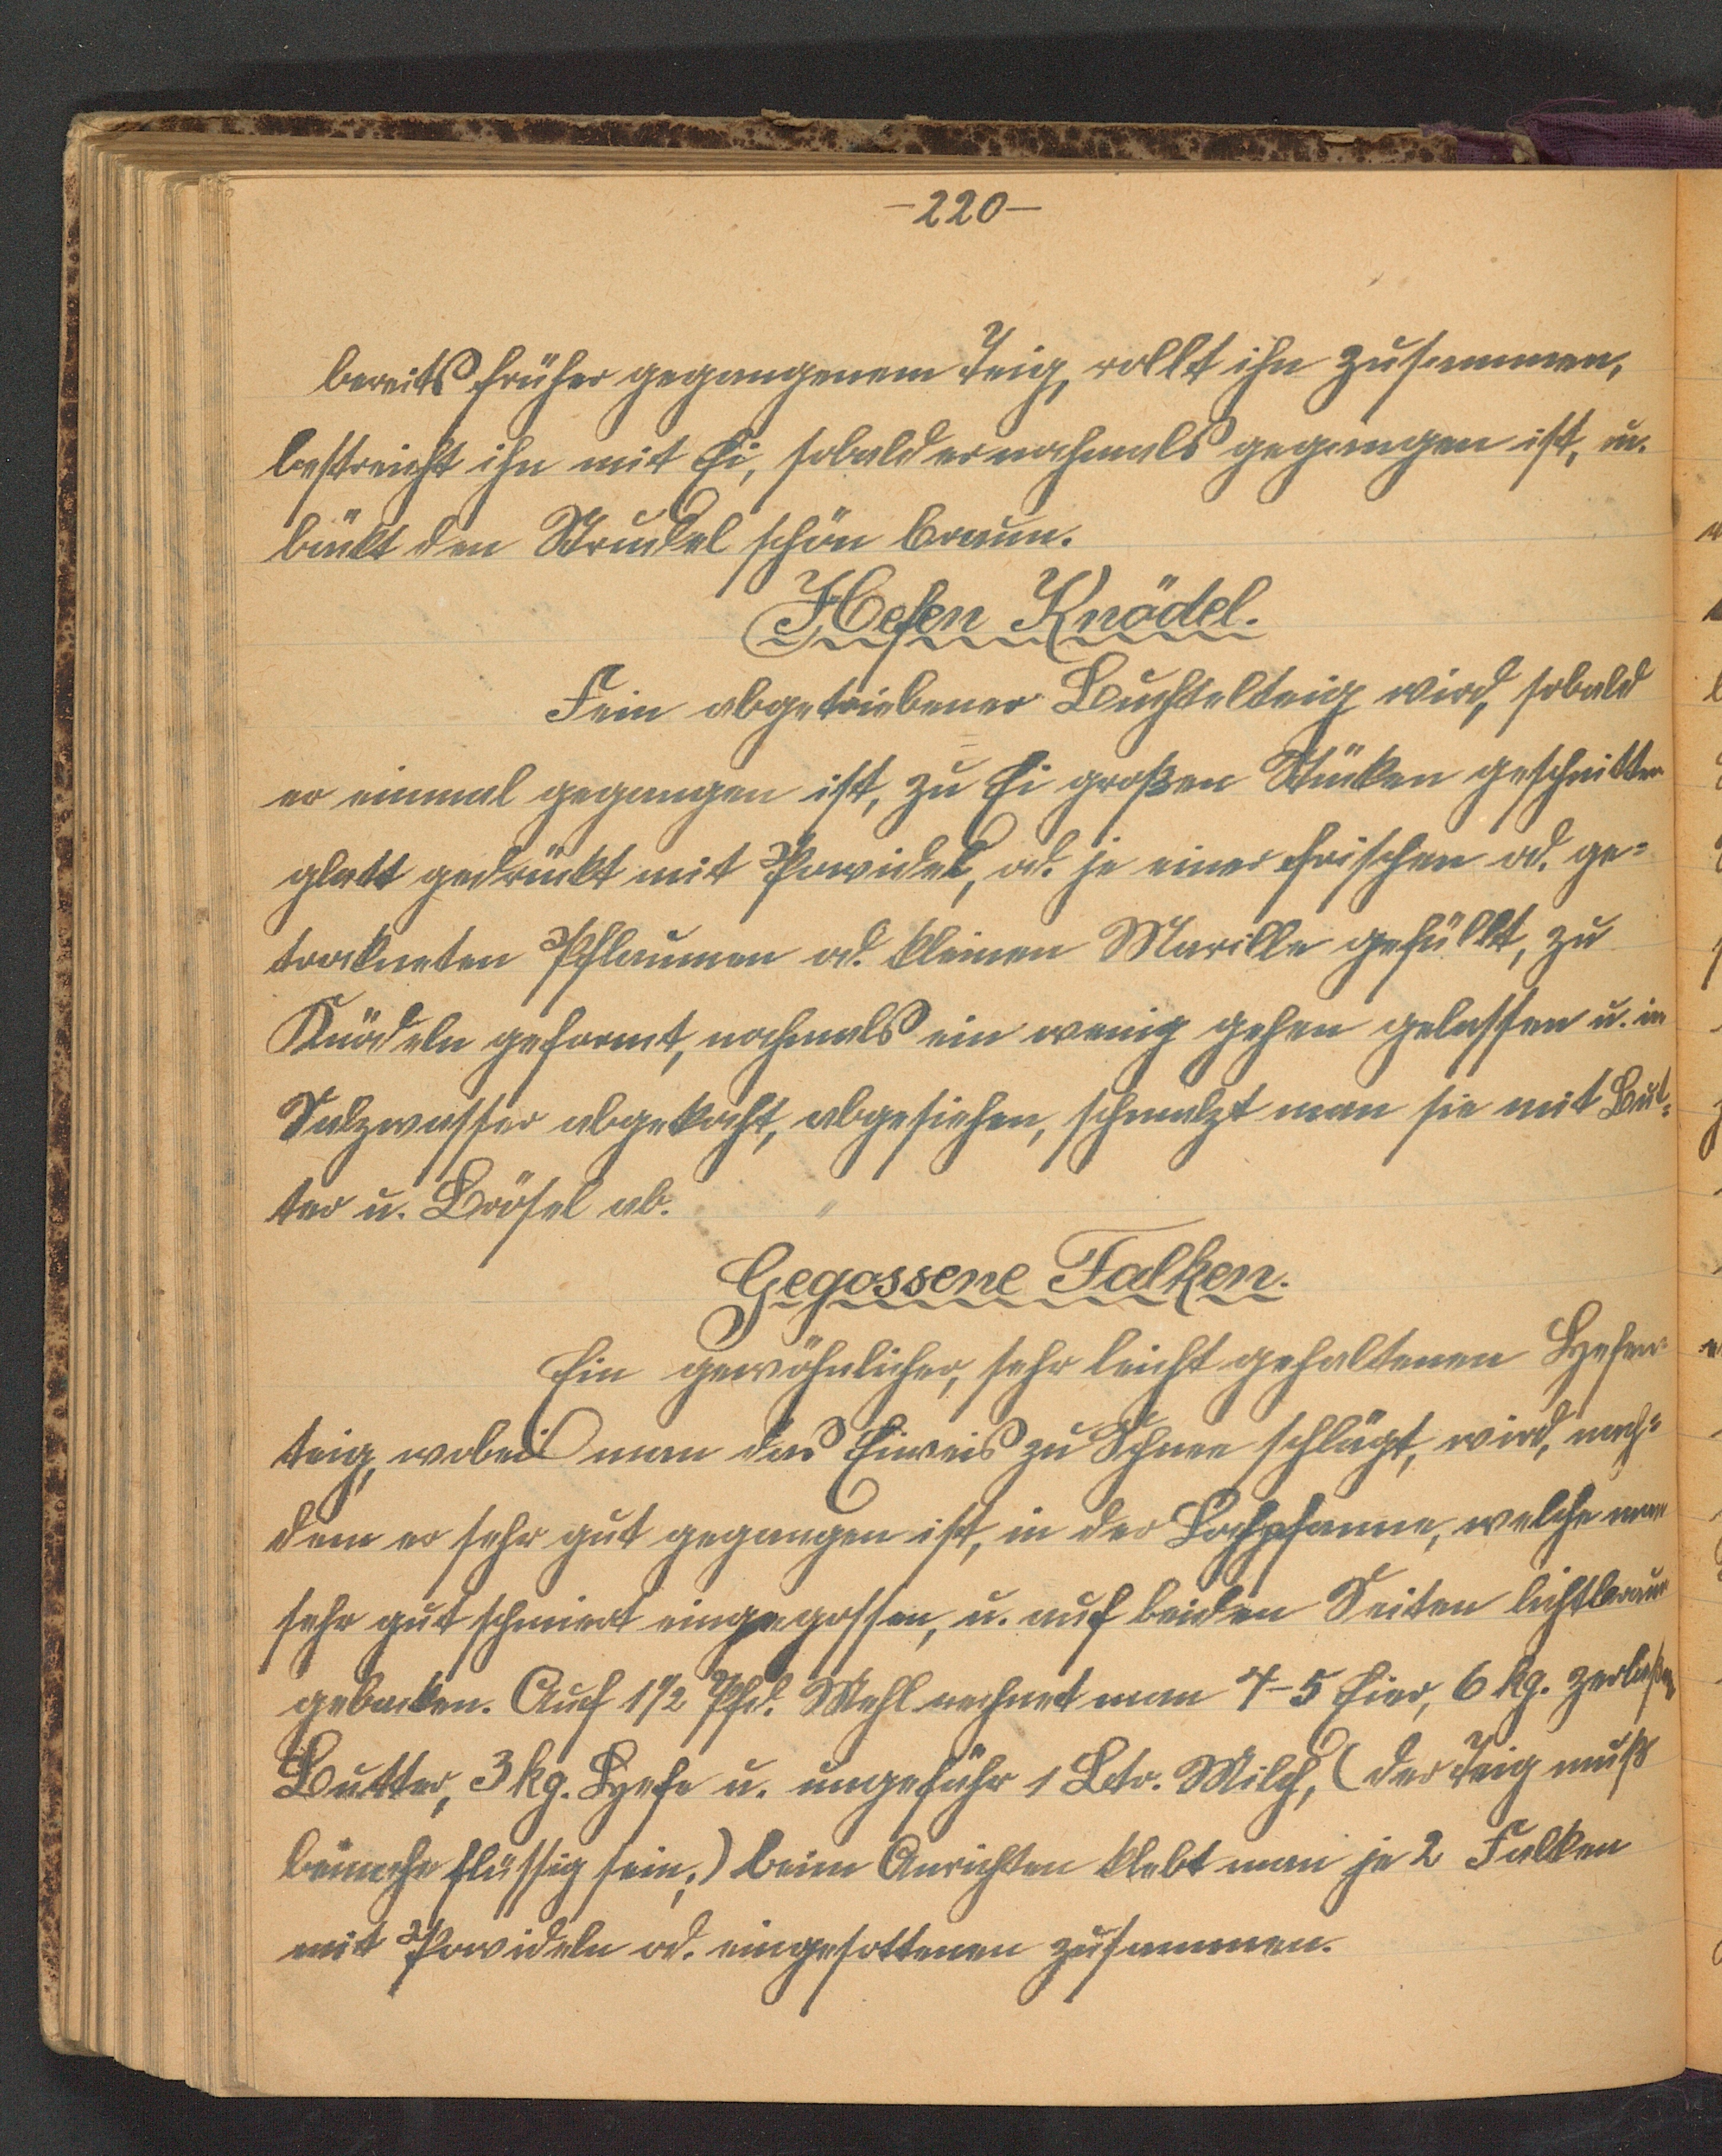 -220-
bereits früher gegangenem Teig, rollt ihn zusammen,
bestreicht ihn mit Ei, sobald er nochmals gegangen ist, u.
bäckt den Strudel schön braun.
Hefen Knödel.
Fein abgetriebener Buchtelteig wird, sobald
er einmal gegangen ist, zu Ei großen Stücken geschnitten
glatt gedrückt mit Powidel, od. je einer frischen od. ge=
trockneten Pflaumen od. kleinen Marille gefüllt, zu
Knödeln geformt, nochmals ein wenig gehen gelassen u. in
Salzwasser abgekocht, abgesiehen, schmalzt man sie mit But=
ter u. Brösel ab.
Gegossene Falken.
Ein gewöhnlicher, sehr leicht gehaltenen Hefen=
teig, wobei man das Eiweis zu Schnee schlägt, wird, nach=
dem er sehr gut gegangen ist, in der Lochpfanne, welche man
sehr gut schmiert eingegossen, u. auf beiden Seiten lichtbraun
gebacken. Auf 1½ Pfd. Mehl rechnet man 4-5 Eier, 6 kg. zerlaßen
Butter, 3 kg. Hefe u. ungefähr 1 Ltr. Milch, (der Teig muß
beinahe flüssig sein;) beim Anrichten klebt man je 2 Falken
mit Powideln od. eingesottenen zusammen.